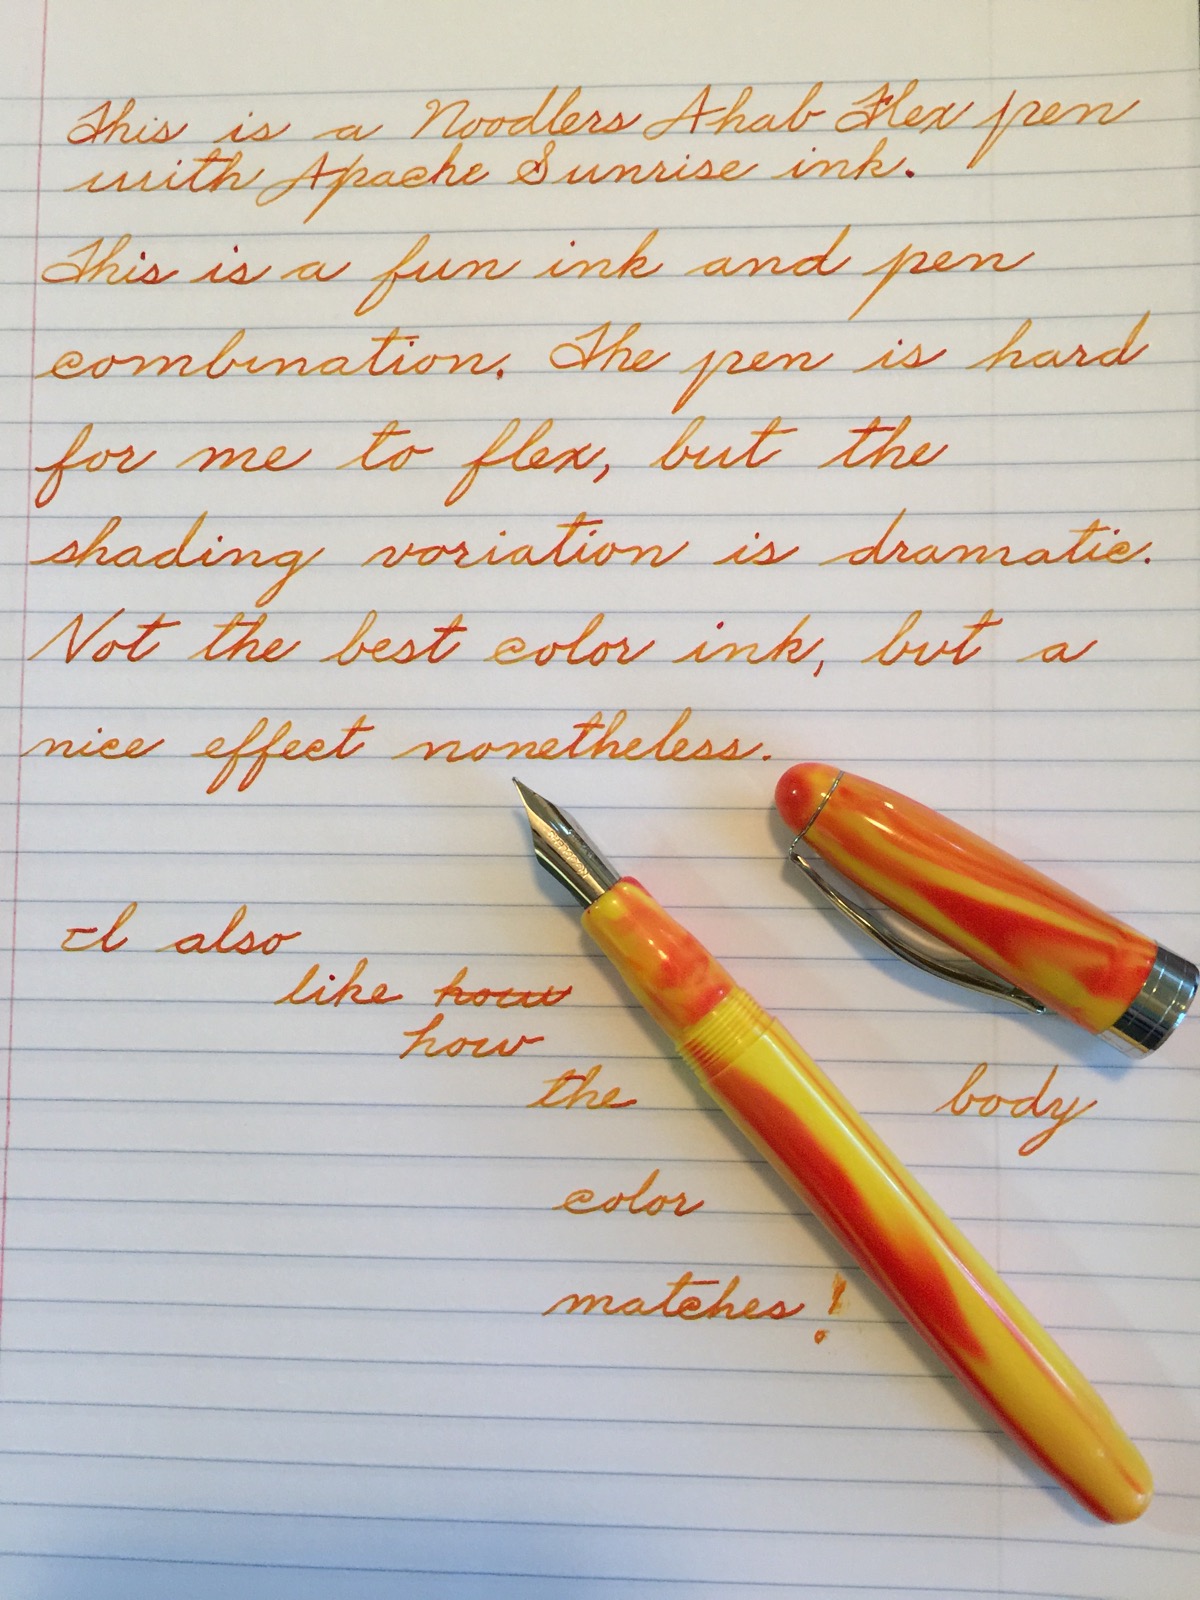 This is a Noodlers Ahab Flex pen
with Apache Sunrise ink.
This is a fun ink and pen
combination. The pen is hard
for me to flex, but the
shading variation is dramatic.
Not the best color ink, but a
nice effect nonetheless.
I also
like how
how
the body
color
matches!